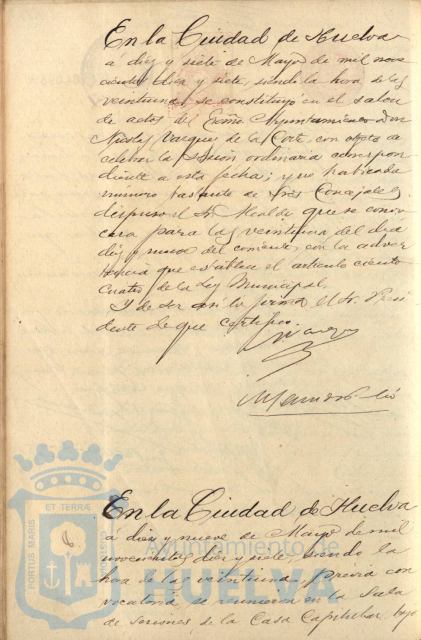 En la Ciudad de Huelva
á diez y siete de Mayo de mil nove
cientos diez y siete, siendo la hora de las
veintiuna, se constituyó en el salon
de actos del Excmo Ayuntamiento Don
Nicolás Vazquez de la Corte, con objeto de
celebrar la sesión ordinaria correspon
diente a esta fecha; y no habiendo
número bastante de Sres Concejales,
dispuso el Sr. Alcalde que se convo
cara para las veintiuna del dia
diez y nueve del corriente, con la adver
tencia que establece el artículo ciento
cuatro de la Ley Municipal.
Y de ser así lo firma el Sr. Presi
dente de que certifico.
En la Ciudad de Huelva
á diez y nueve de Mayo de mil
novecientos diez y siete, siendo la
hora de las veintiuna, previa con
vocatoria, se reunieron en la Sala
de Sesiones de la Casa Capitular bajo
PORTUS MARIS
ET TERRÆ
Ayuntamiento de
HUELVA